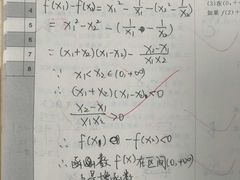 f(x₁)-f(x₂)= x₁² - 1/x₁ - (x₂² - 1/x₂)
= x₁² - x₂² - (1/x₁ - 1/x₂)
= (x₁+x₂)(x₁-x₂) - (x₂-x₁)/(x₁x₂)
∵ x₁<x₂∈(0,+∞)
∴ (x₁+x₂)(x₁-x₂)<0
(x₂-x₁)/(x₁x₂)>0
∴ f(x₁) - f(x₂)<0
∴ 函数 f(x)在区间(0,+∞)
上是增函数
(3)在(0,+
如果 f(2
4
5
6
7
8